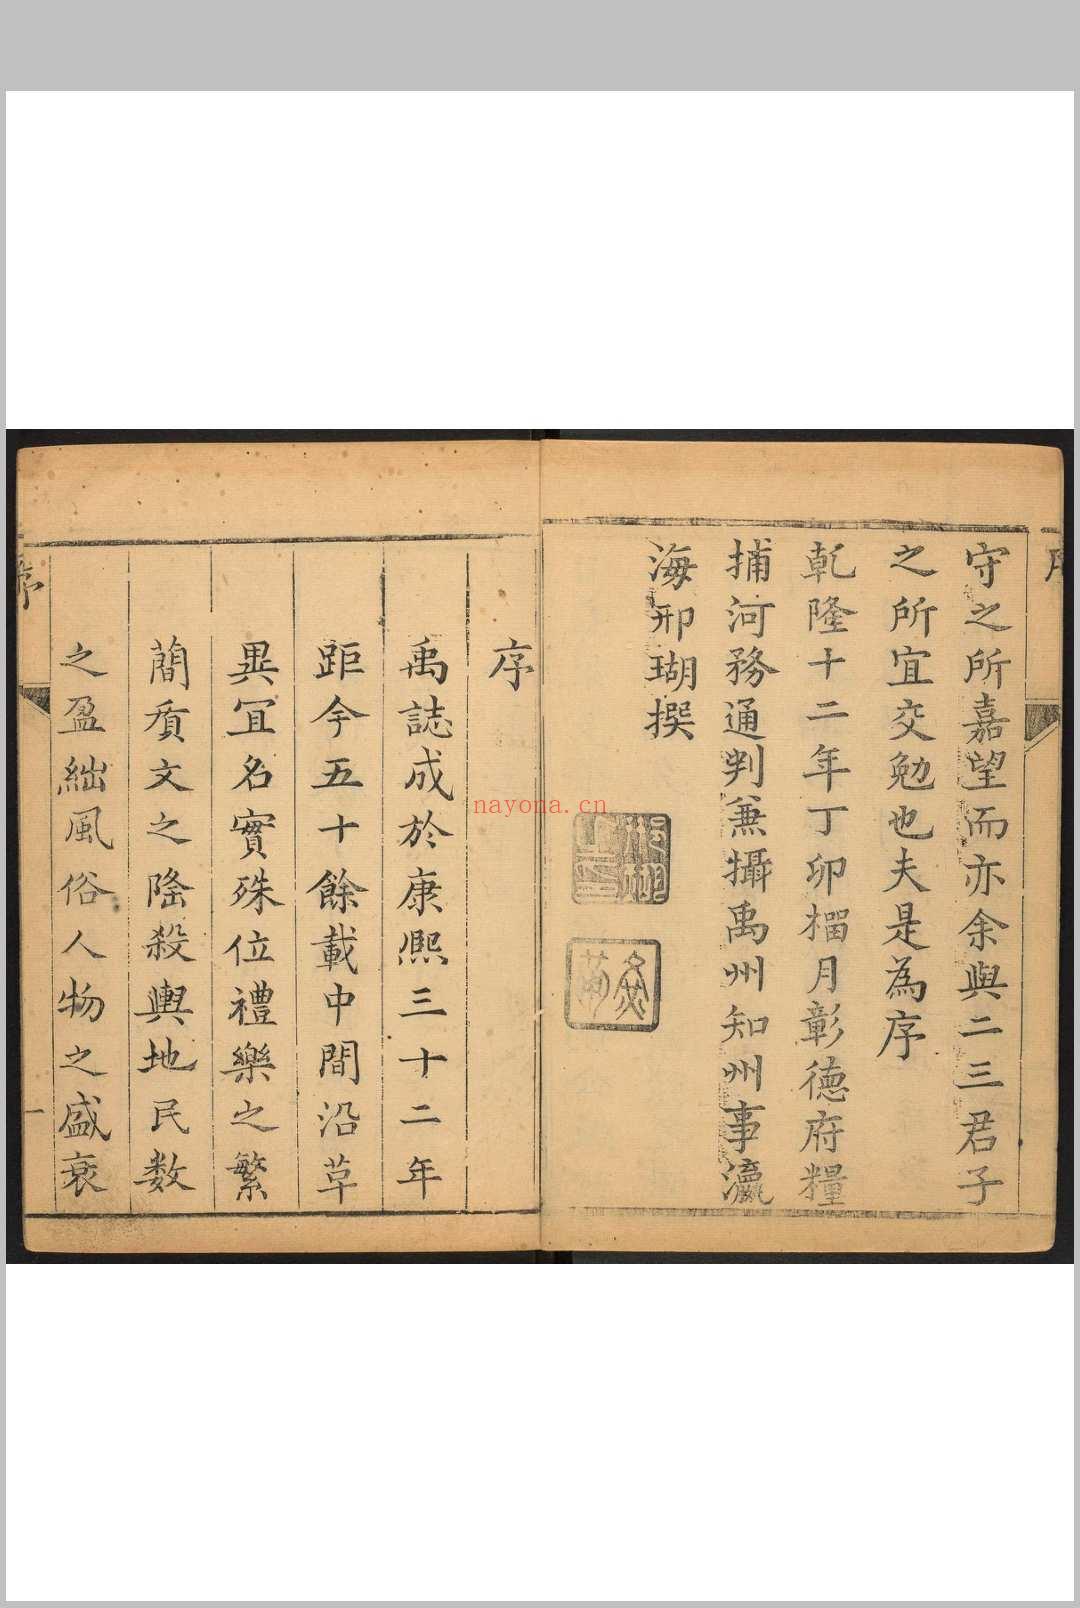 序
守之所嘉望而亦余與二三君子
之所宜交勉也夫是為序
乾隆十二年丁卯橊月彰德府糧
捕河務通判兼攝禹州知州事瀛
海邢瑚撰
序
禹誌成於康熙三十二年
距今五十餘載中間沿革
異宜名實殊位禮樂之繁
簡質文之隆殺輿地民数
之盈絀風俗人物之盛衰
序
一
nayona.cn